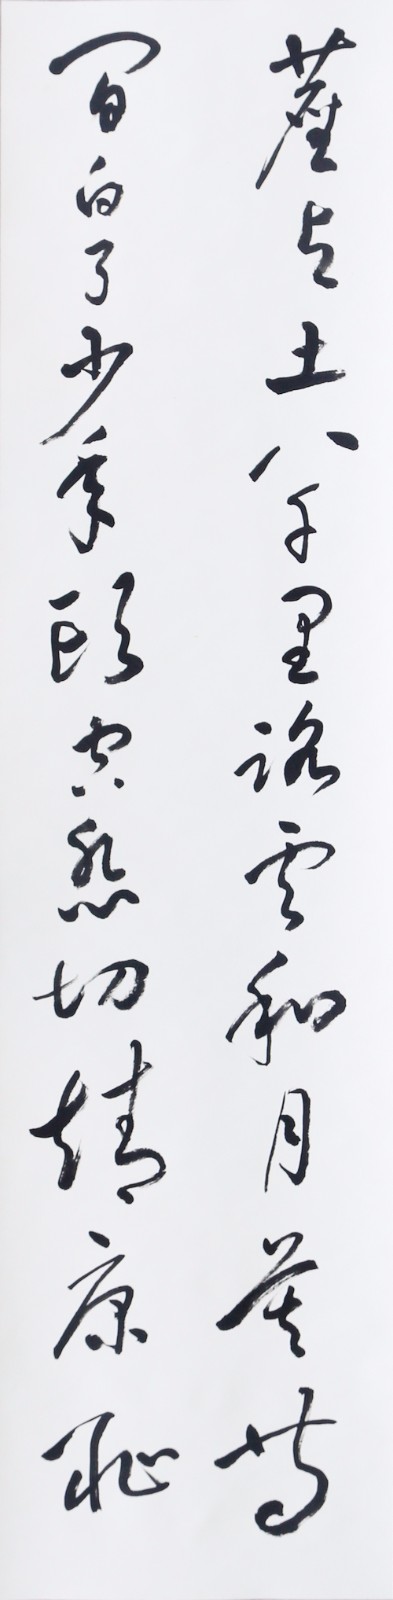 塵与土八千里路雲和月莫等
間白了少年頭空悲切靖康耻